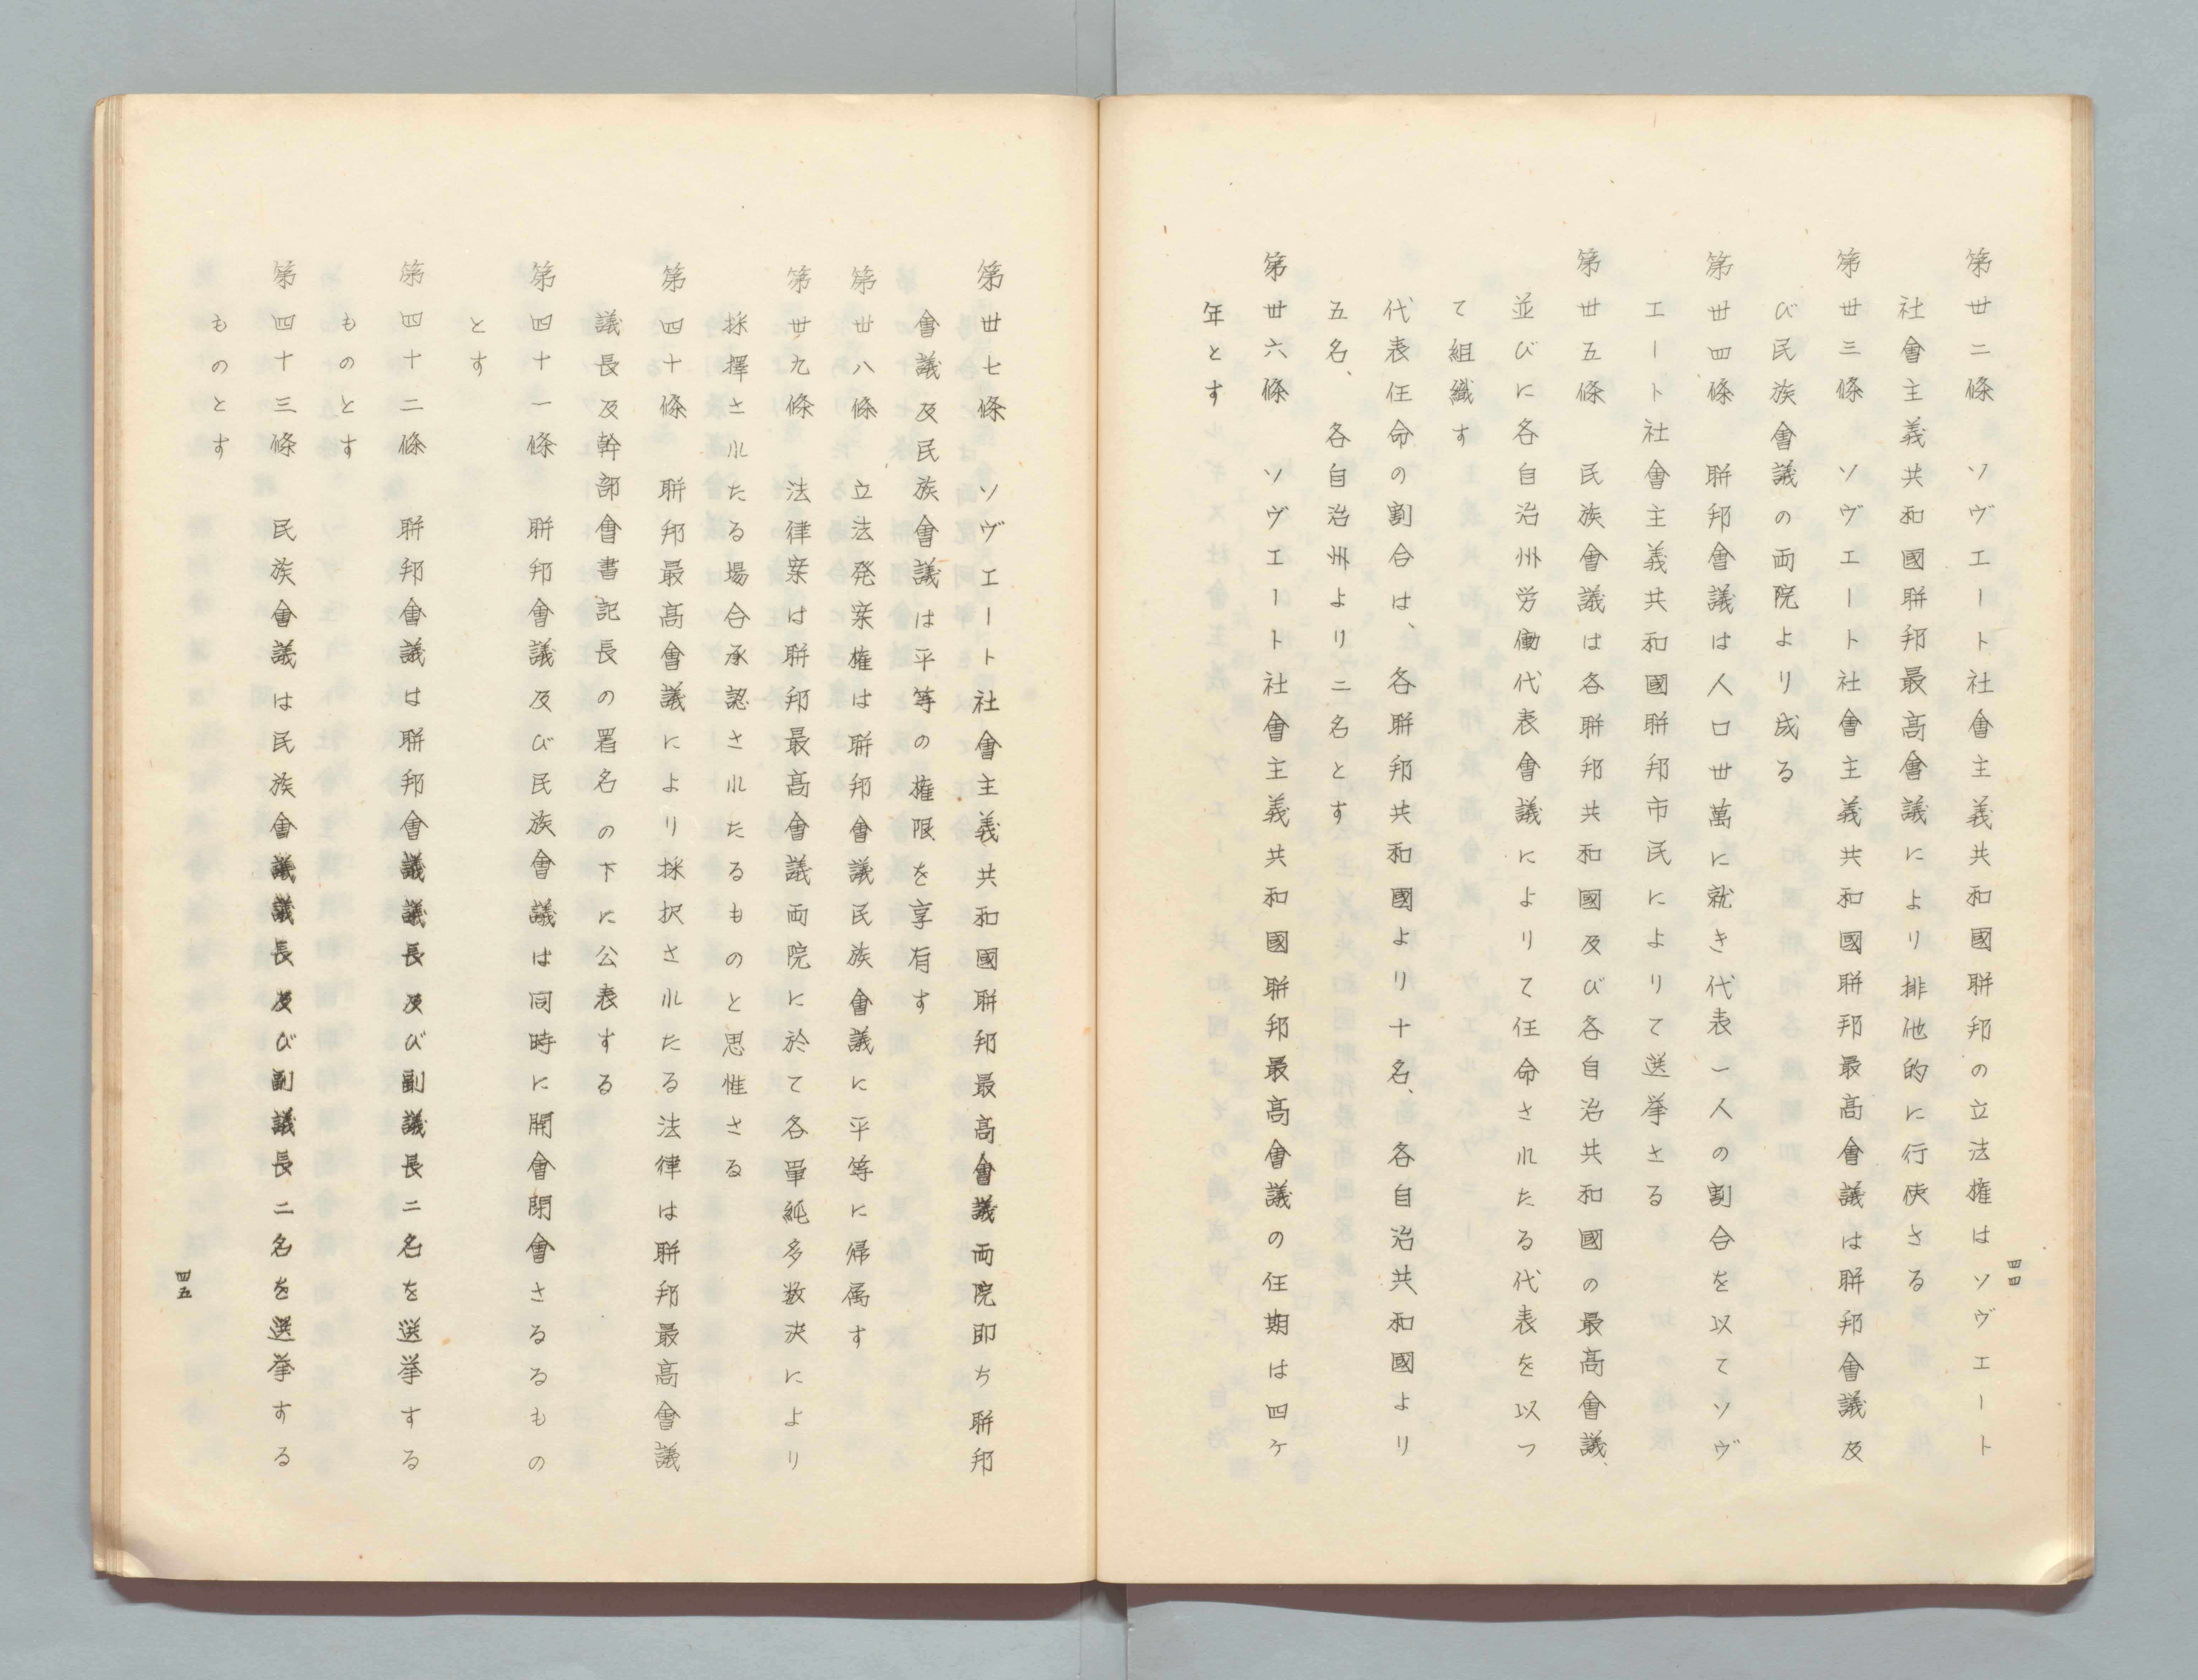 第卅二條　ソヴエート社會主義共和國聯邦の立法権はソヴエート
社會主義共和國聯邦最高會議により排他的に行使さる
第卅三條　ソヴエート社會主義共和國聯邦最高會議は聯邦會議及
び民族會議の両院より成る
第卅四條　聯邦會議は人口卅萬に就き代表一人の割合を以てソヴ
エート社會主義共和國聯邦市民によりて送挙さる
第卅五條　民族會議は各聯邦共和國及び各自治共和國の最高會議、
並びに各自治州労働代表會議によりて任命されたる代表を以つ
て組織す
代表任命の割合は、各聯邦共和國より十名、各自治共和國より
五名、各自治州より二名とす
第卅六條　ソヴエート社會主義共和國聯邦最高會議の任期は四ケ
年とす
四四
第卅七條　ソヴエート社會主義共和國聯邦最高會議両院即ち聯邦
會議及民族會議は平等の権限を享有す
第卅八條　立法発案権は聯邦會議民族會議に平等に帰属す
第卅九條　法律案は聯邦最高會議両院に於て各單純多数決により
採擇されたる場合承認されたるものと思惟さる
第四十條　聯邦最高會議により採択されたる法律は聯邦最高會議
議長及幹部會書記長の署名の下に公表する
第四十一條　聯邦會議及び民族會議は同時に開會閉會さるるもの
とす
第四十二條　聯邦會議は聯邦會議議長及び副議長二名を送挙する
ものとす
第四十三條　民族會議は民族會議議長及び副議長二名を選挙する
ものとす
四五